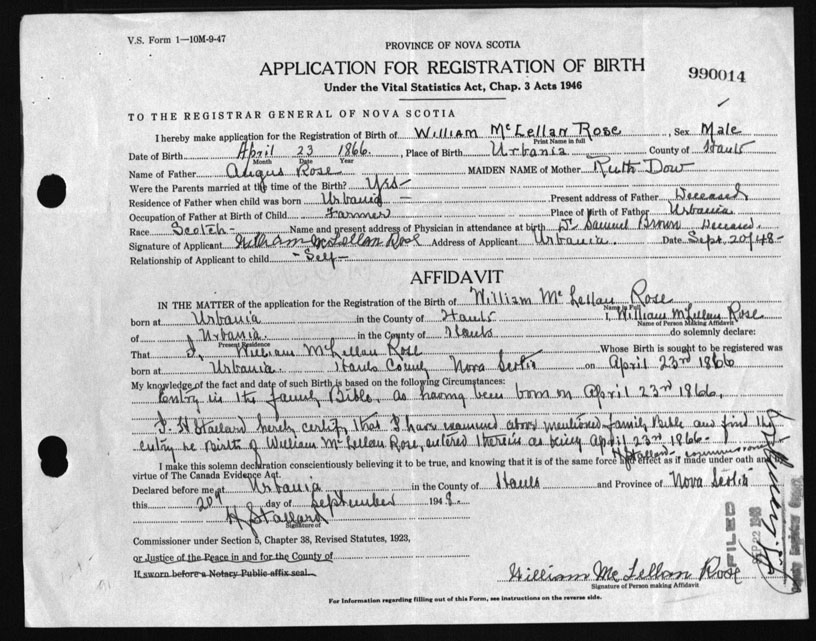 V.S. Form 1—10M-9-47
PROVINCE OF NOVA SCOTIA
APPLICATION FOR REGISTRATION OF BIRTH
990014
Under the Vital Statistics Act, Chap. 3 Acts 1946
TO THE REGISTRAR GENERAL OF NOVA SCOTIA
I hereby make application for the Registration of Birth of William McLellan Rose, Sex Male
Print Name in full
Date of Birth April 23 1866, Place of Birth Urbania County of Hants
Month Date Year
Name of Father Angus Rose MAIDEN NAME of Mother Ruth Dow
Were the Parents married at the time of the Birth? Yes—
Residence of Father when child was born Urbania — Present address of Father Deceased
Occupation of Father at Birth of Child Farmer Place of Birth of Father Urbania
Race Scotch— Name and present address of Physician in attendance at birth Dr Samuel Brown Deceased.
Signature of Applicant William McLellan Rose Address of Applicant Urbania. Date Sept. 20/48-
Relationship of Applicant to child -Self-
AFFIDAVIT
IN THE MATTER of the application for the Registration of the Birth of William McLellan Rose
Name in Full
born at Urbania in the County of Hants I, William McLellan Rose
Name of Person Making Affidavit
of Urbania. in the County of Hants do solemnly declare:
Present Residence
That I, William McLellan Rose Whose Birth is sought to be registered was
born at Urbania. Hants County Nova Scotia on April 23rd 1866
My knowledge of the fact and date of such Birth is based on the following Circumstances:
Entry in the family Bible, as having been born on April 23rd 1866.
I. H Stallard hereby certify that I have examined above mentioned family Bible and find the
entry re Birth of William McLellan Rose, entered therein as being April 23rd 1866-
H Stallard commissioner
I make this solemn declaration conscientiously believing it to be true, and knowing that it is of the same force and effect as if made under oath and by
virtue of The Canada Evidence Act.
Declared before me at Urbania in the County of Hants and Province of Nova Scotia
this 20th day of September 1948.
H Stallard
Signature of
Commissioner under Section 5, Chapter 38, Revised Statutes, 1923,
or Justice of the Peace in and for the County of
If sworn before a Notary Public affix seal.
William McLellan Rose
Signature of Person making Affidavit
For Information regarding filling out of this Form, see instructions on the reverse side.
FILED
SEP 22 1948